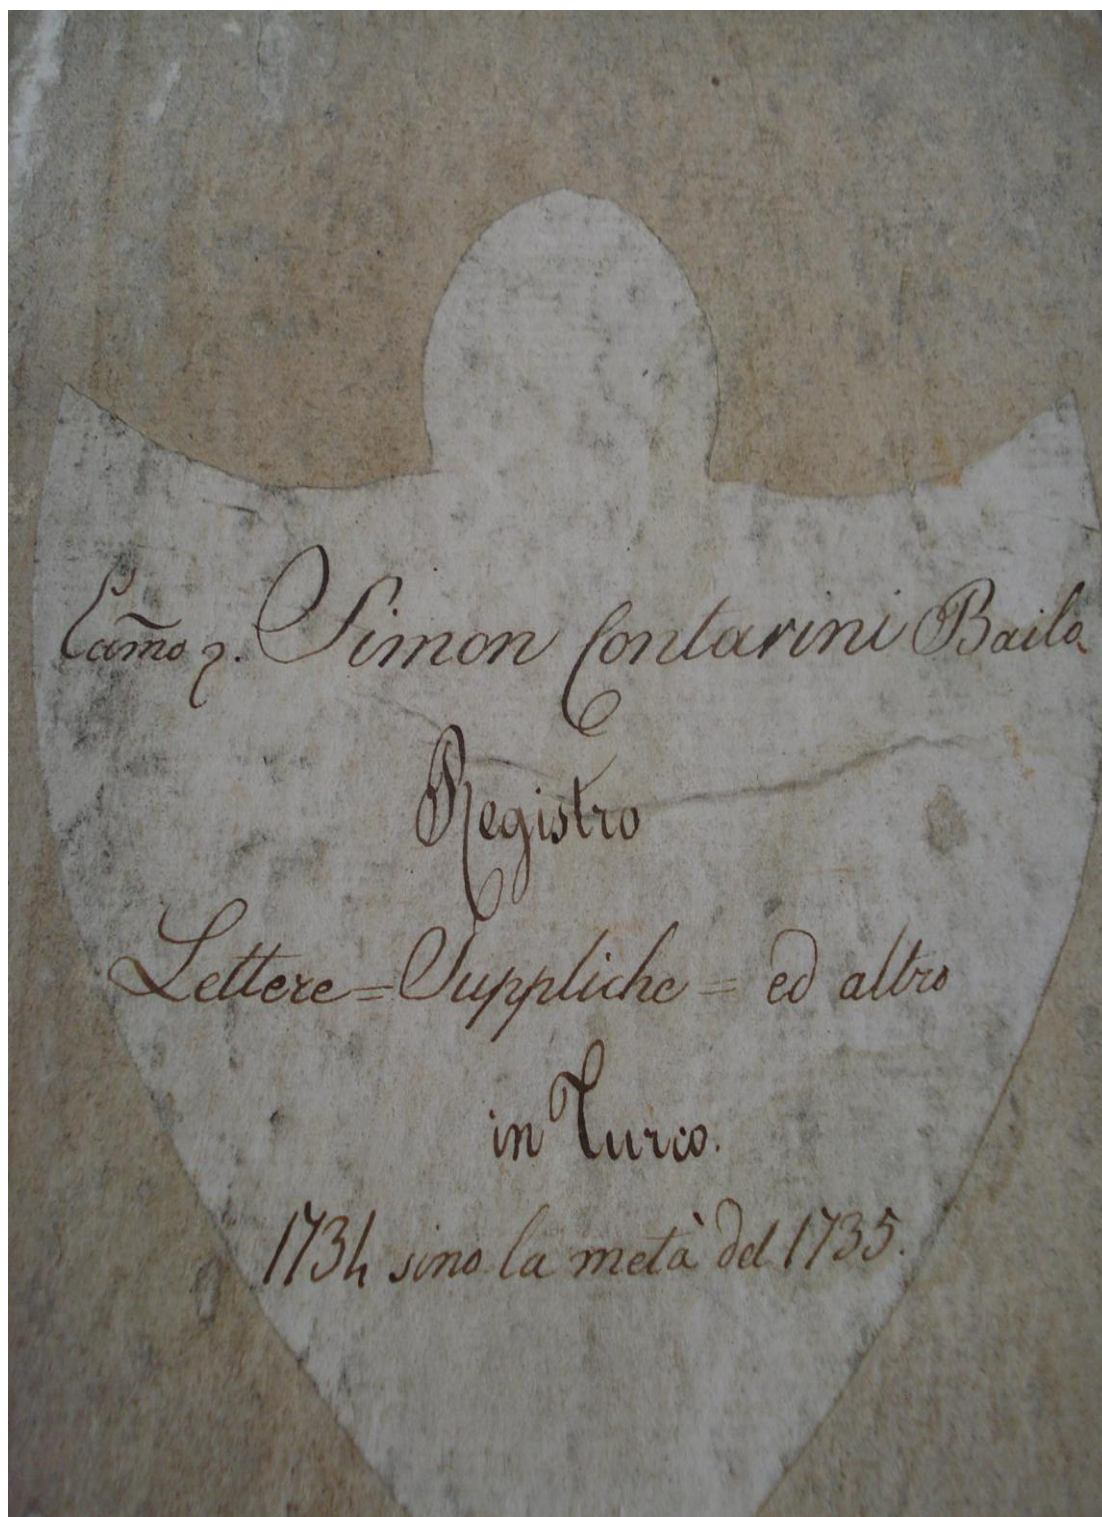 Simon Contarini Bailo
Registro
Lettere = Suppliche = ed altro
in Turco.
1734 sino la metà del 1735.